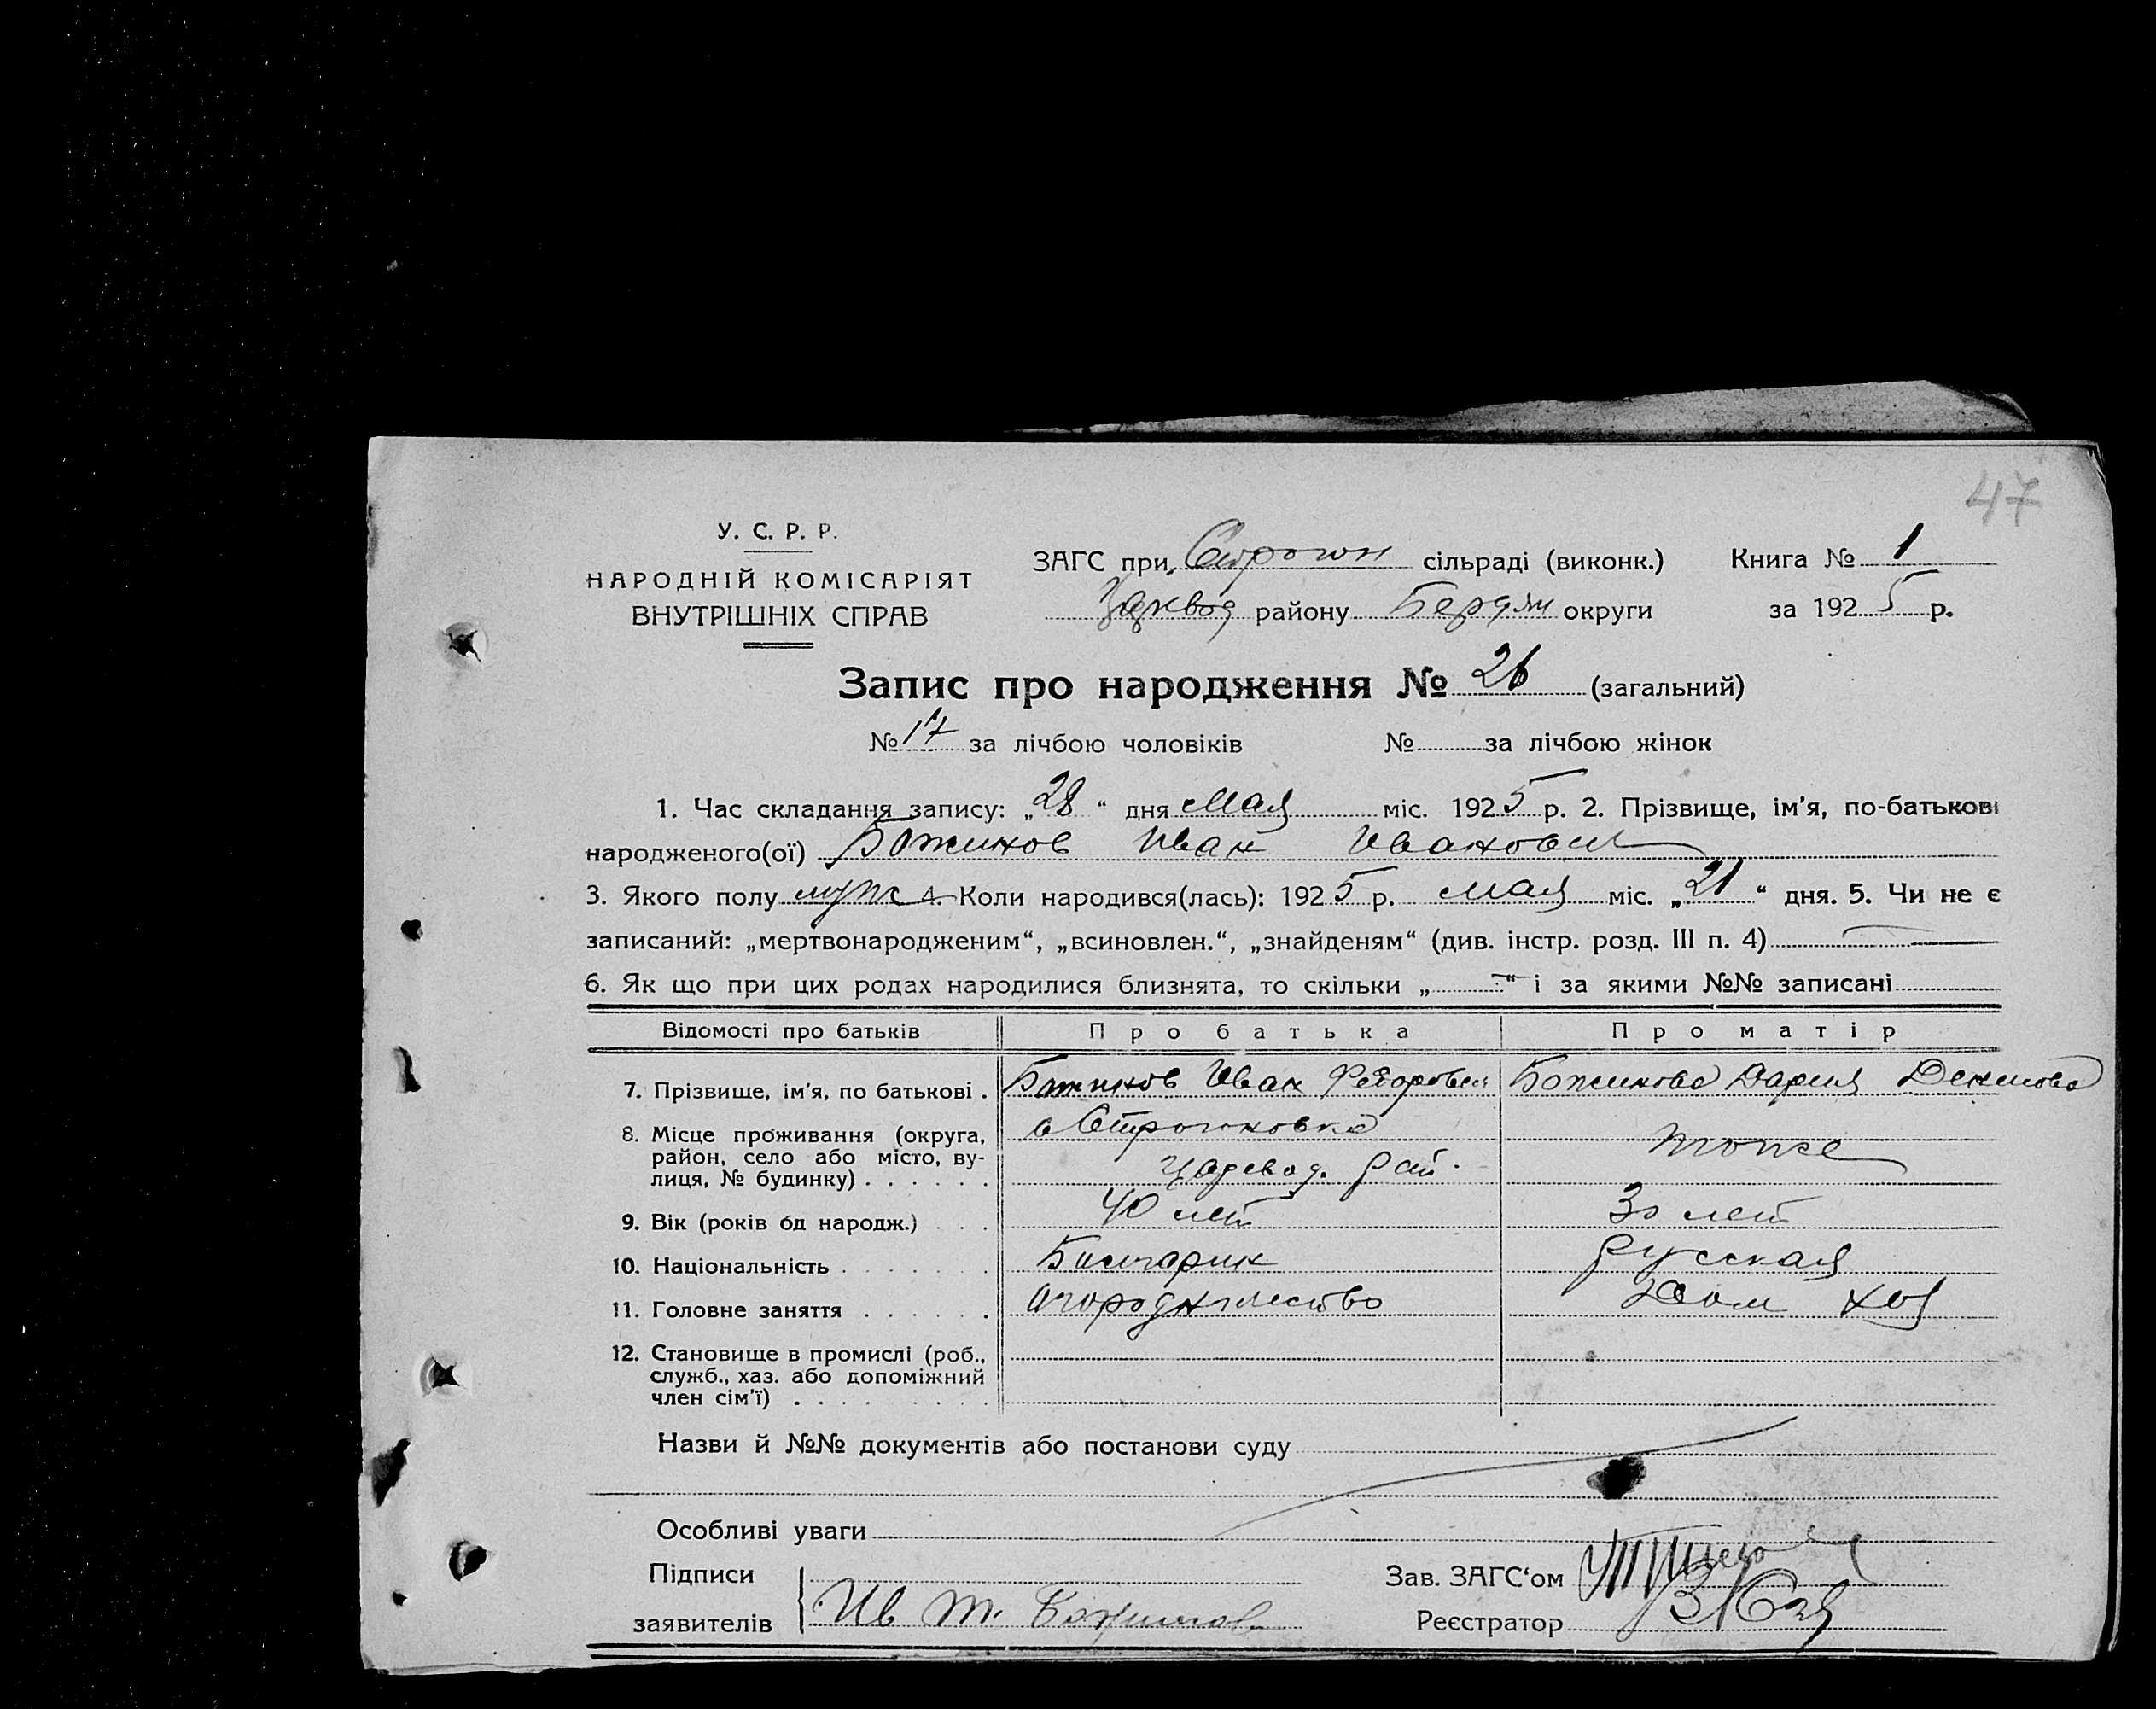 47
У. С. Р. Р.
НАРОДНІЙ КОМІСАРІЯТ
ВНУТРІШНІХ СПРАВ
ЗАГС при Строгон сільраді (виконк.) Книга № 1
району Бердян округи за 1925 р.
Запис про народження № 26 (загальний)
№ 17 за лічбою чоловіків № за лічбою жінок
1. Час складання запису: „28“ дня Мая міс. 1925 р. 2. Прізвище, ім'я, по-батькові
народженого(ої) Божинов Иван Иванович
3. Якого полу муж 4. Коли народився(лась): 1925 р. мая міс. „21“ дня. 5. Чи не є
записаний: „мертвонародженим“, „всиновлен.“, „знайденям“ (див. інстр. розд. III п. 4) —
6. Як що при цих родах народилися близнята, то скільки „—“ і за якими №№ записані
Відомості про батьків Про батька Про матір
7. Прізвище, ім'я, по батькові . Божинов Иван Федорович Божинова Дария Денисова
8. Місце проживання (округа, район, село або місто, вулиця, № будинку) . . . . . . с Строгоновка Цадевод. рай. тоже
9. Вік (років од народж.) . . . 40 лет 30 лет
10. Національність . . . . . . . Болгарин Русская
11. Головне заняття . . . . . . Огородничество Дом хоз
12. Становище в промислі (роб., служб., хаз. або допоміжний член сім'ї) . . . . . . . . .
Назви й №№ документів або постанови суду
Особливі уваги
Підписи
заявителів Ив Божинов
Зав. ЗАГС‘ом
Реєстратор